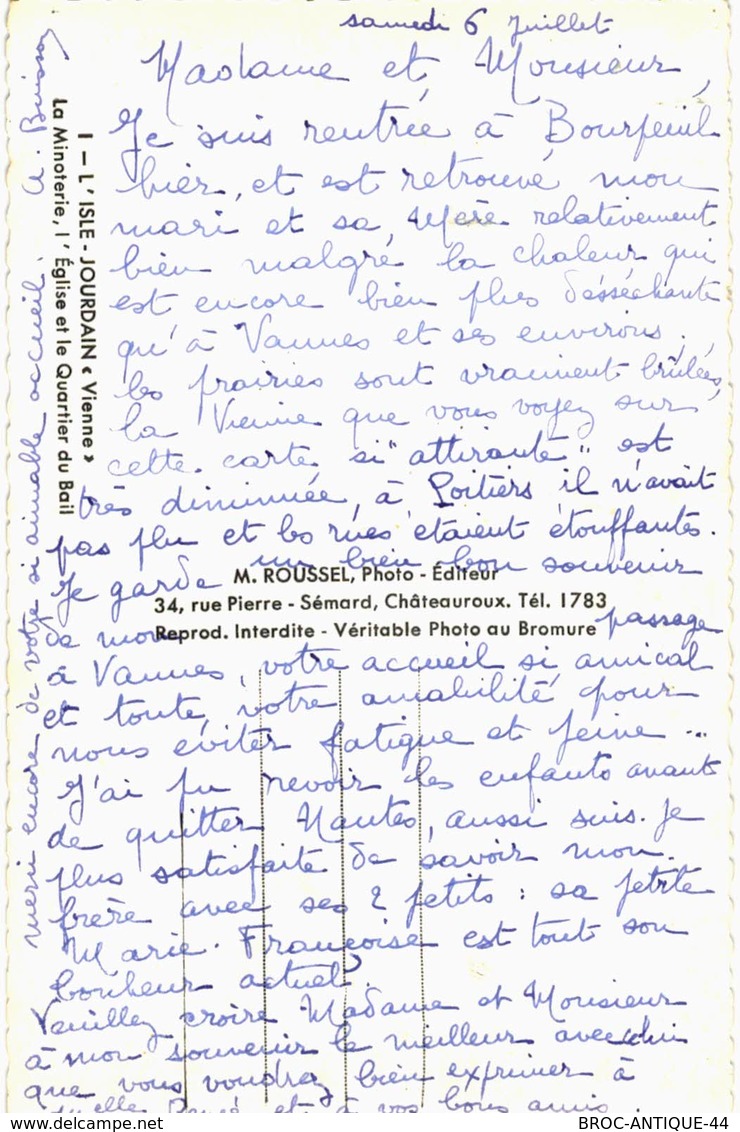 samedi 6 juillet
Madame et Monsieur,
Je suis rentrée à Bourpeuil
hier, et est retrouvé mon
mari et sa Mère relativement
bien malgré la chaleur qui
est encore bien plus désséchante
qu'à Vannes et ses environs.
les prairies sont vraiment brûlées,
la Vienne que vous voyez sur
cette carte si "attirante" est
très diminuée, à Poitiers il n'avait
pas plu et les rues étaient étouffantes.
Je garde un bien bon souvenir
de mon passage
à Vannes, votre accueil si amical
et toute votre amabilité pour
nous éviter fatigue et peine ...
J'ai pu revoir les enfants avant
de quitter Nantes, aussi suis-je
plus satisfaite de savoir mon
frère avec ses 2 petits : sa petite
Marie-Françoise est tout son
bonheur actuel.
Veuillez croire Madame et Monsieur
à mon souvenir le meilleur avec celui
que vous voudrez bien exprimer à
et à vos bons amis.
merci encore de votre si aimable accueil.
1 – L'ISLE-JOURDAIN « Vienne »
La Minoterie, l'Église et le Quartier du Bail
M. ROUSSEL, Photo - Éditeur
34, rue Pierre - Sémard, Châteauroux. Tél. 1783
Reprod. Interdite - Véritable Photo au Bromure
BROC-ANTIQUE-44